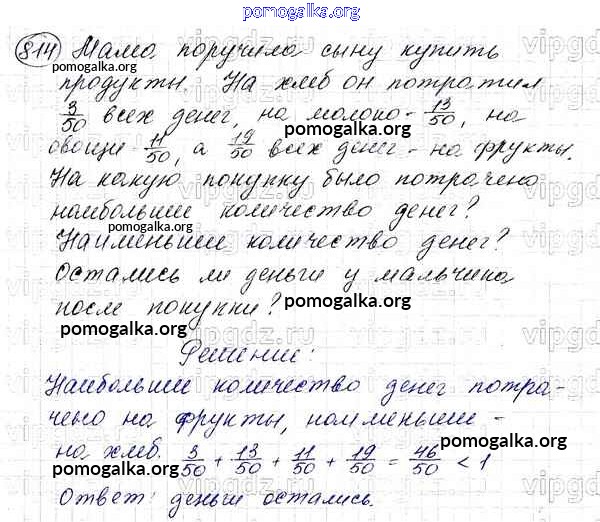 pomogalka.org
814 Мама поручила сыну купить
pomogalka.org
продукты. На хлеб он потратил
3/50 всех денег, на молоко - 13/50, на
pomogalka.org
овощи - 11/50, а 19/50 всех денег - на фрукты.
pomogalka.org
На какую покупку было потрачено
наибольшее количество денег?
pomogalka.org
Наименьшее количество денег?
Остались ли деньги у мальчика
после покупки?
pomogalka.org
pomogalka.org
Решение:
Наибольшее количество денег потра-
чено на фрукты, наименьшее -
pomogalka.org
на хлеб. 3/50 + 13/50 + 11/50 + 19/50 = 46/50 < 1
pomogalka.org
Ответ: деньги остались.